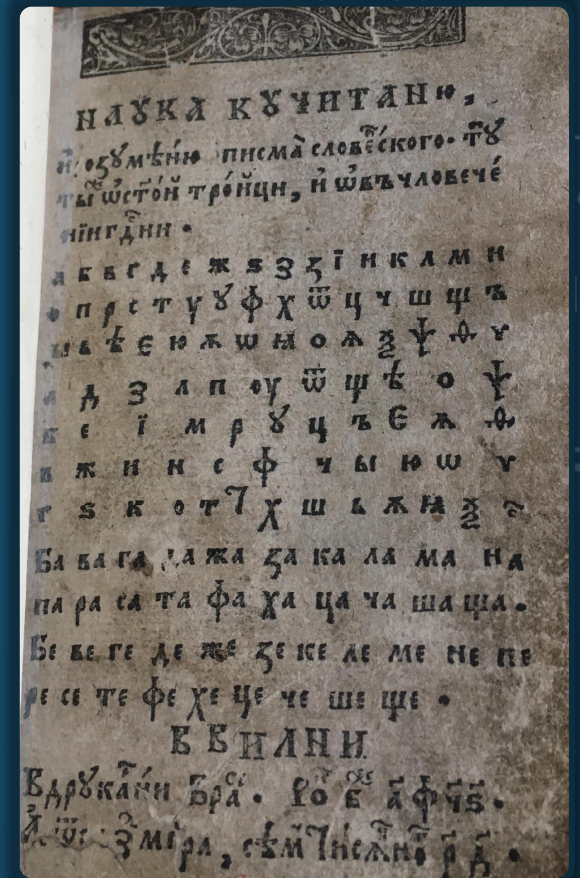 НАꙊКА КꙊЧИТАНЮ,
и розꙋмѣ́нїю писма̀ словѐскогѡ· тꙋ
ты̑ ѡ ст҃ой тро́йци, и҆ ѡ въчловече́
нїи гдн҃и ·
а б в г д е ж ѕ з ꙁ ї и к л м н
о п р с т у ꙋ ф х ѿ ц ч ш щ ъ
ы ь ѣ є ю ѫ ѡ ꙗ о ѧ ѯ ѱ ѳ ѵ
а д з л п оу ѿ щ ѣ о ѱ
б е ї м р ꙋ ц ъ є ѧ ѳ
в ж и н с ф ч ы ю ѡ ѵ
г ѕ к о т х ш ь ѫ ꙗ ѯ
Ба ва га да жа ꙁа ка ла ма на
па ра са та фа ха ца ча ша ща.
Бе ве ге де же ꙁе ке ле ме не пе
ре се те фе хе це че ше ще ·
ВВИЛНИ
Вдрꙋка́ни Бра́ · Ро в а҂ ф ч ѕ ·
мира,